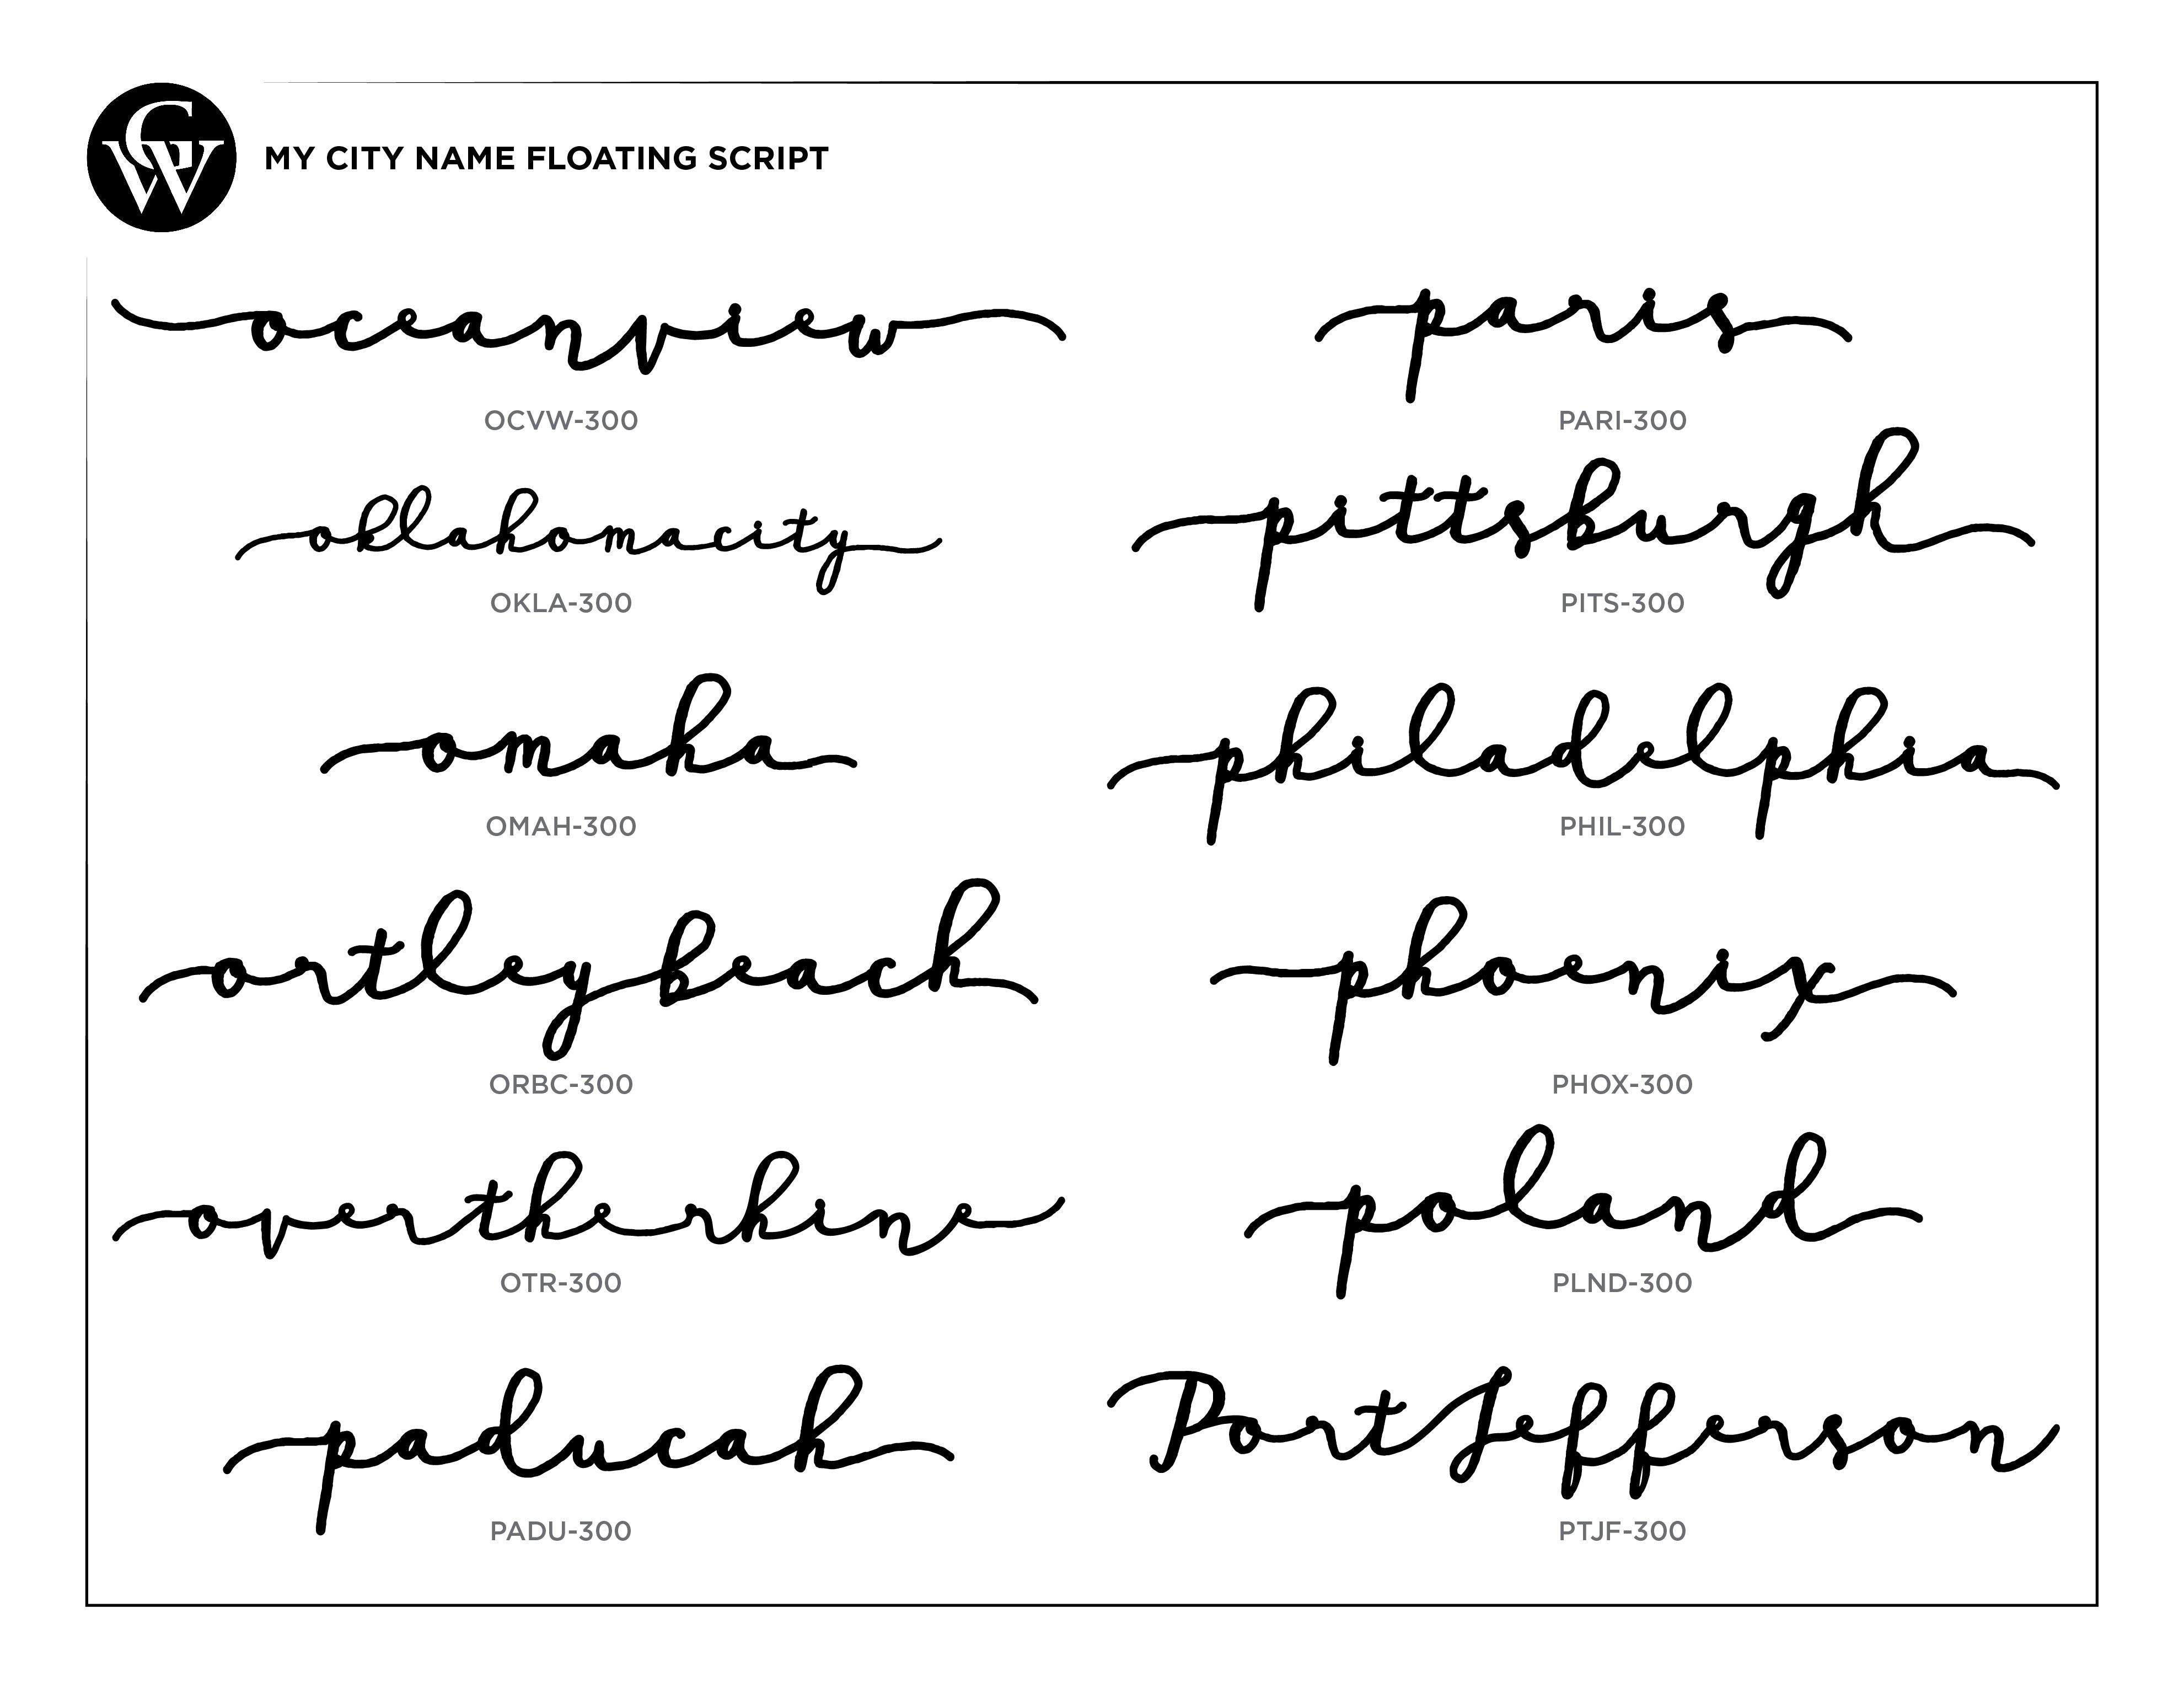 CW
MY CITY NAME FLOATING SCRIPT
oceanview
OCVW-300
oklahomacity
OKLA-300
omaha
OMAH-300
ortleybeach
ORBC-300
overtherhine
OTR-300
paducah
PADU-300
paris
PARI-300
pittsburgh
PITS-300
philadelphia
PHIL-300
phoenix
PHOX-300
poland
PLND-300
PortJefferson
PTJF-300